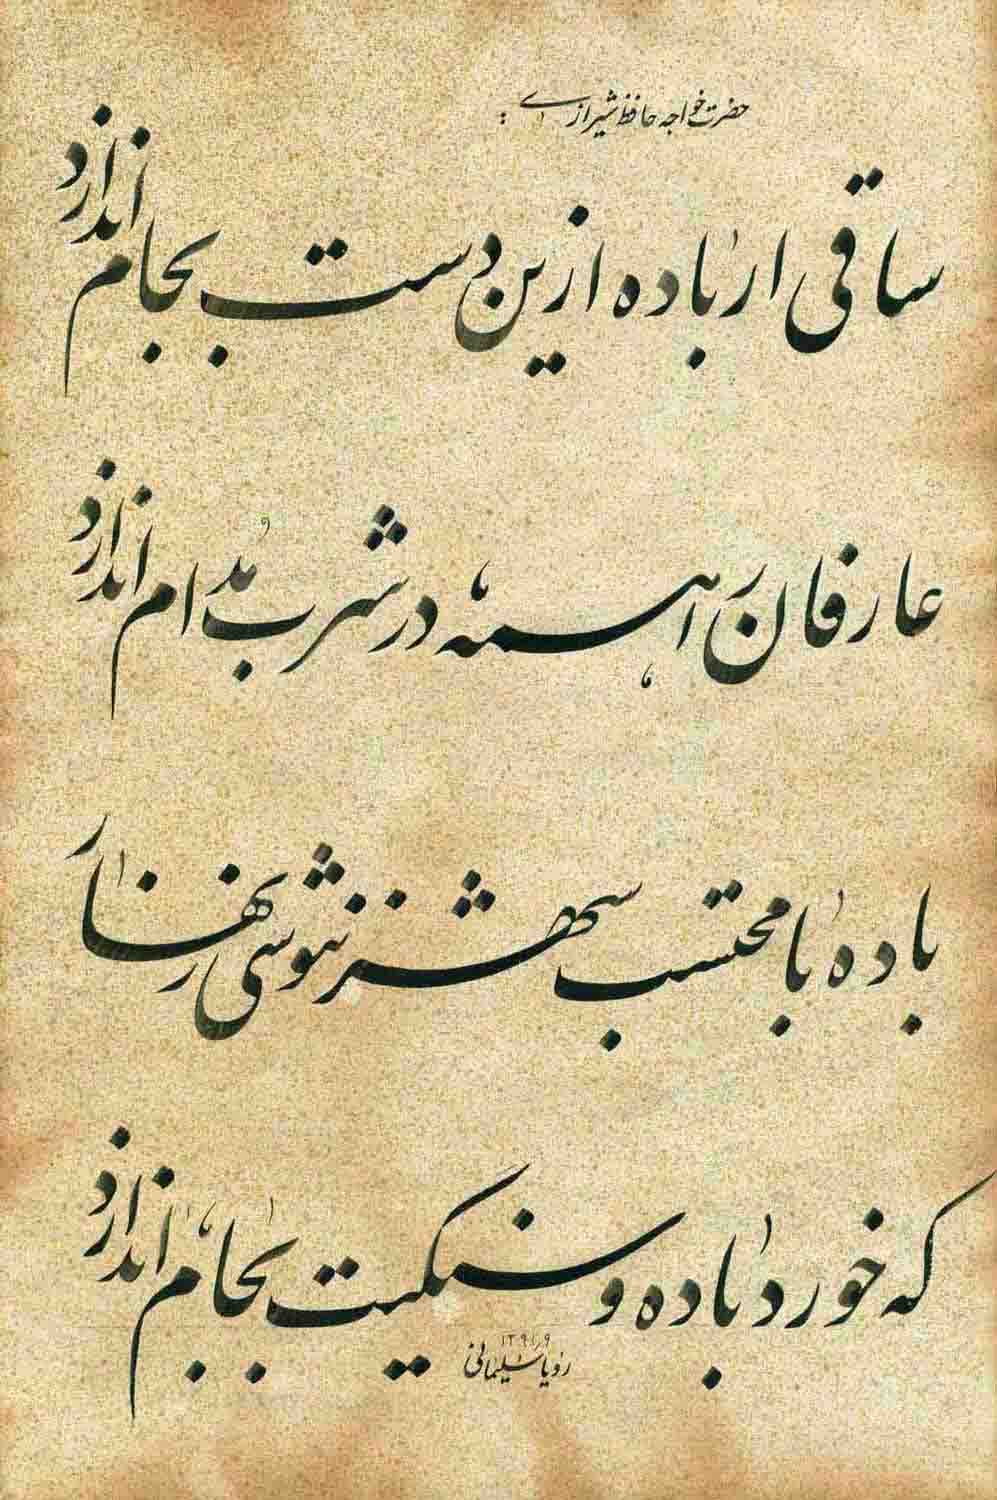 حضرت خواجه حافظ شیرازی :
ساقی ار باده ازین دست بجام اندازد
عارفان را همه در شرب مدام اندازد
باده با محتسب شهر ننوشی زنهار
که خورد باده و سنگیت بجام اندازد
۱۳۹۱٫۹
رؤیا سلیمانی